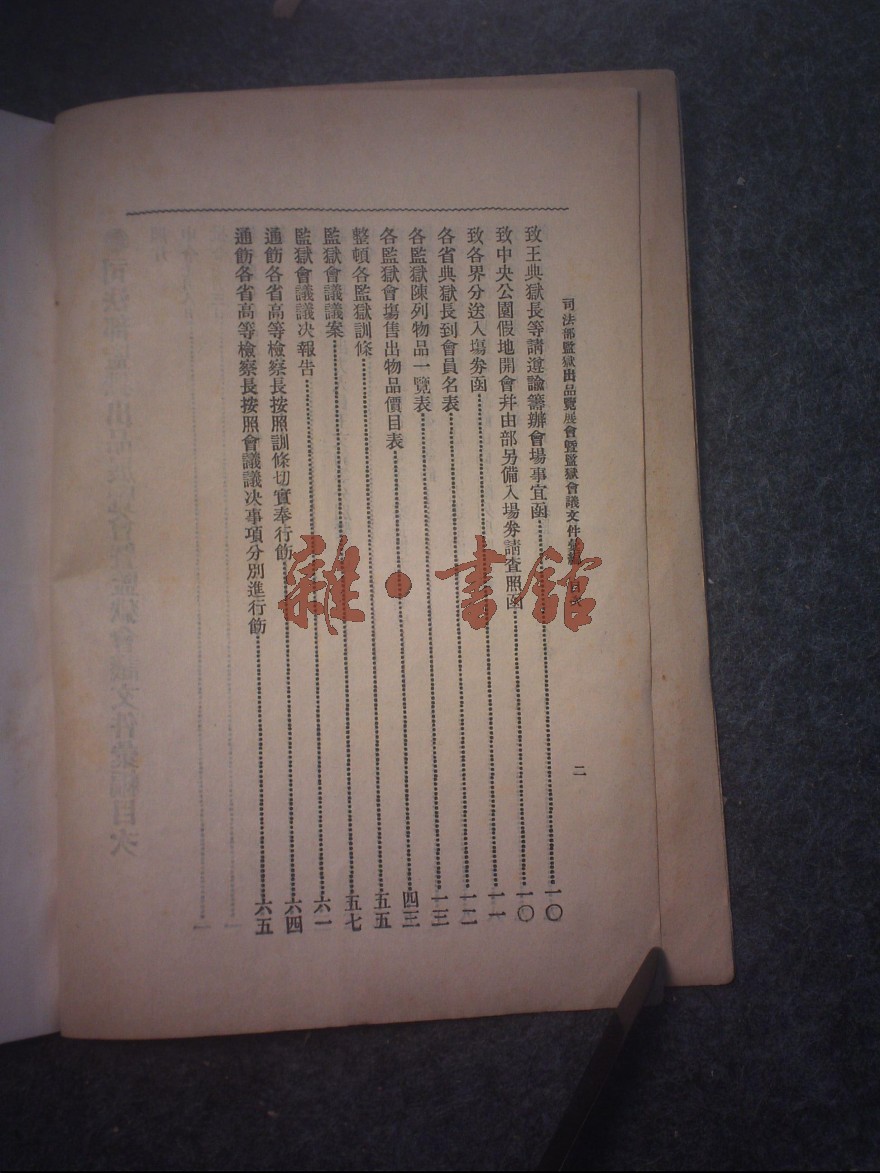 司法部監獄出品覽展會暨監獄會議文件彙編 目次
二
致王典獄長等請遵諭籌辦會場事宜函 一〇
致中央公園假地開會幷由部另備入場劵請查照函 一〇
致各界分送入塲劵函 一一
各省典獄長到會員名表 一二
各監獄陳列物品一覽表 一三
各監獄會塲售出物品價目表 四三
整頓各監獄訓條 五五
監獄會議議案 五七
監獄會議議决報告 六一
通飭各省高等檢察長按照訓條切實奉行飭 六四
通飭各省高等檢察長按照會議議决事項分別進行飭 六五
雜·書館